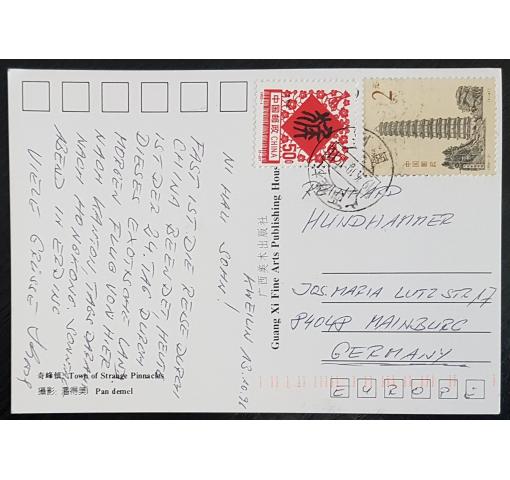 KWEILIN 13.10.92
NI HAU SOHN!
FAST IST DIE REISE DURCH
CHINA BEENDET. HEUTE
IST DER 24. TAG DURCH
DIESES EXOTISCHE LAND
MORGEN FLUG VON HIER
NACH KANTON, TAGS DARAUF
NACH HONGKONG. SONNTAG
ABEND IN ERDING
VIELE GRÜSSE
奇峰镇 Town of Strange Pinnacles
攝影 潘得美 Pan demel
广西美术出版社
Guang Xi Fine Arts Publishing House
中国邮政 CHINA
50分
猴
2元
中国邮政
REINHARD
HUNDHAMMER
JOS. MARIA LUTZ STR 17
84048 MAINBURG
GERMANY
EUROPE